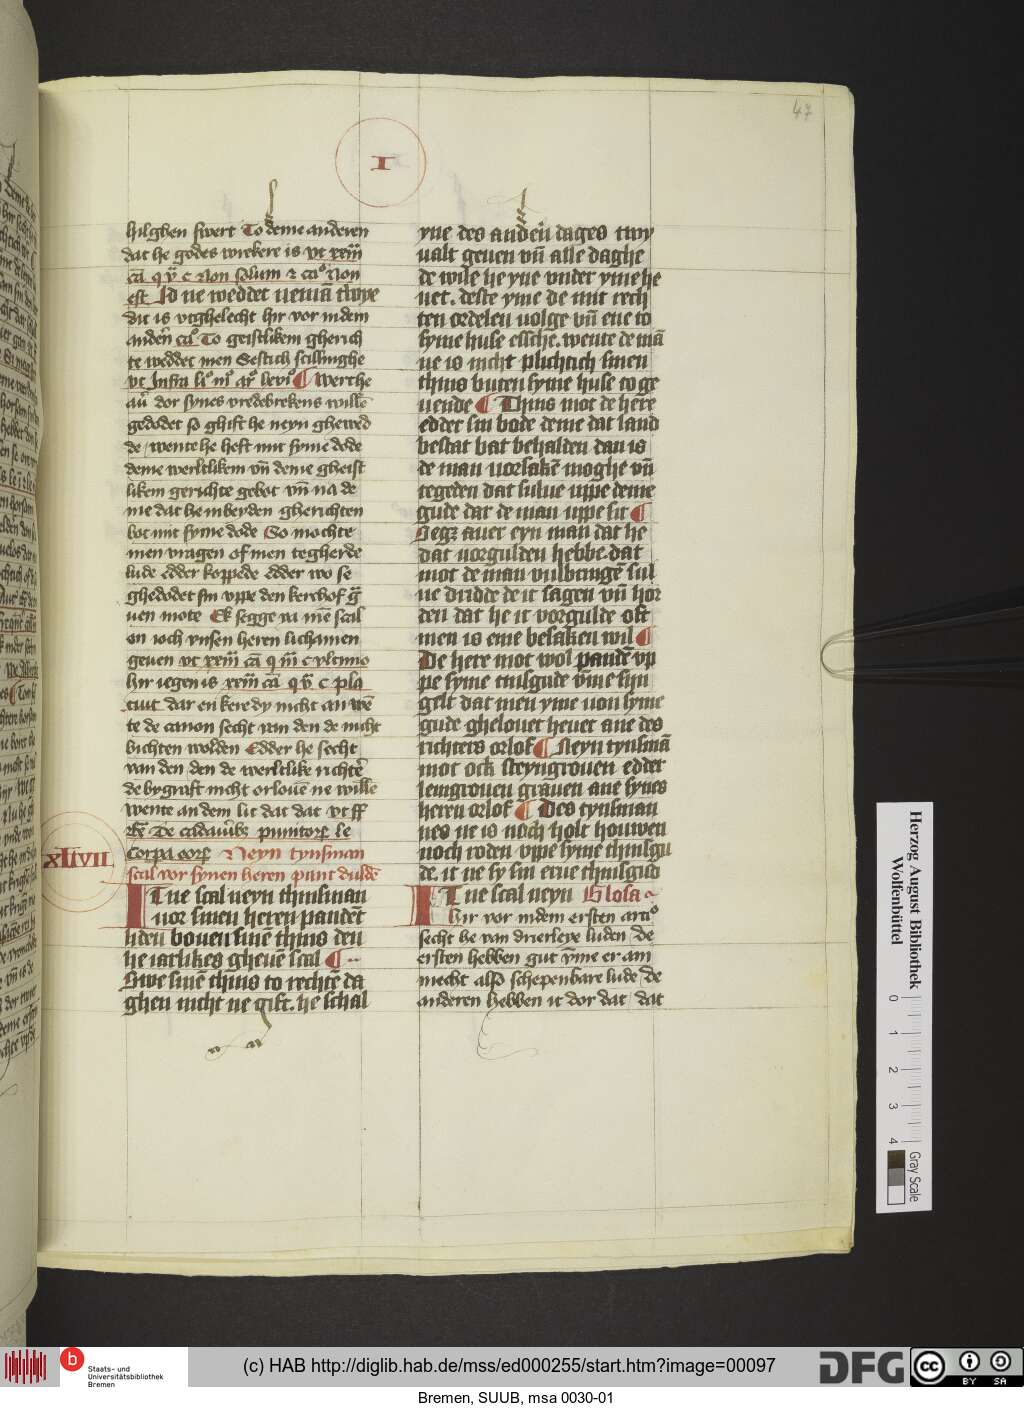 47
I
hilghen swert To deme anderen
dat he godes wrekere is vt xxiij
cā q v̄ c Non solum ⁊ cao Non
est Id ne weddet nemā twye
dit is vtghelecht hir vor indem
andern̄ cao To geistlikem gherich
te weddet men Sestich scillinghe
vt Infra lio iijo aro levio ¶ Werthe
au̅ dor synes vredebrekens willē
gedodet so ghift he neyn ghewed
de / wente he heft mit syme dode
deme werltlikem vn̄ deme gheist
likem gerichte gebot vn̄ na de
me dat he in beyden gherichten
bot mit syme dode So mochte
men vragen of men tegherde
lude edder koppede edder wo se
ghedodet sin vppe den kerchof g̅
uen mote Ek segge ia mē scal
on roch vnsen heren lichamen
geuen vt xxiij cā q iij c vltimo
hir iegen is xxiij cā q v̄ c pla
cuit dar en kere dy nicht an wē
te de canon secht van den de nicht
bichten wolden Edder he secht
van den den de werltlike richter̄
de bygraft nicht orlouē ne willē
wente an dem lit dat dat vt ff
Corpa Neyn tynsman
scal vor synen heren pant duldē
XLIVII
IT ne scal neyn thinsman
vor sinen heren pandēt
liden bouen sinē thins den
he iarlikes gheuē scal ¶
Swe sinē thins to rechtē da
ghen nicht ne gift. he schal
yne des anden̄ dages twy
ualt geuen vn̄ alle daghe
de wile he yne vnder yme he
uet. deste yme de mit rech
ten ordelen uolge vn̄ ene to
syme huse essche. wente de mā
ne is nicht plichtich sinen
thins buten syme huse to ge
uende ¶ Thins mot de here
edder sin bode deme dat land
bestat bat behalden dan is
de man uorsakē moghe vn̄
tegeden dat sulue uppe deme
gude dat de man uppe sit ¶
Segz auer eyn man dat he
dat uorgulden hebbe. dat
mot de man vulbringē sul
ue dridde de it sagen vn̄ hor
den dat he it vorgulde oft
men is eme besaken wil ¶
De here mot wol pandē vp
pe syme tinsgude vme sin
gelt dat men yme uon syme
gude ghelouet heuet ane des
richters orlof ¶ Neyn tynsmā
mot och steyngrouen edder
leimgrouen grauen ane synes
heren orlof ¶ Des tynsman
nes ne is noch holt houwen
noch roden vppe syme thinsgu
de. it ne sy sin erue thinsgud
IT ne scal neyn Glosa
hir vor indem ersten artio
secht he van drierleye luden / De
ersten hebben gut yme er am
mecht also schepenbare lude / de
anderen hebben it dor dat / dat
Herzog August Bibliothek
Wolfenbüttel
0 1 2 3 4
Gray Scale
b
Staats- und
Universitätsbibliothek
Bremen
(c) HAB http://diglib.hab.de/mss/ed000255/start.htm?image=00097
DFG
cc BY SA
Bremen, SUUB, msa 0030-01